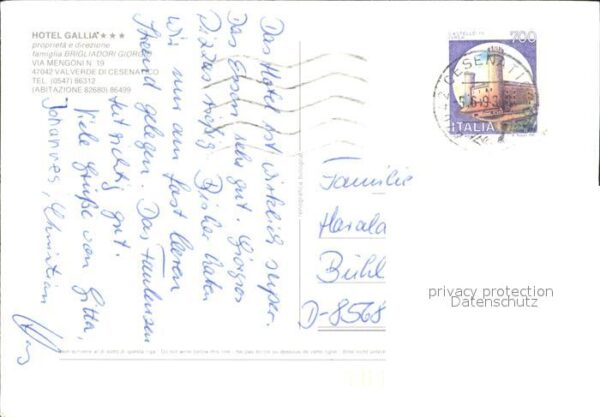 HOTEL GALLIA ★★★
proprietà e direzione
famiglia BRIGLIADORI GIORG
VIA MENGONI N. 19
47042 VALVERDE DI CESENATICO
TEL. (0547) 86312
(ABITAZIONE 82680) 86499
Das Hotel ist wirklich super.
Das Essen sehr gut. Giorgios
Diktat mäßig. Bisher haben
wir nur am fast leeren
Strand gelegen. Das Faulenzen
tut richtig gut.
Viele Grüße von Gitta,
Johannes, Christian
CASTELLO DI
700
CESENATI
ITALIA
Familie
Harala
Bühl
D-8568
privacy protection
Datenschutz